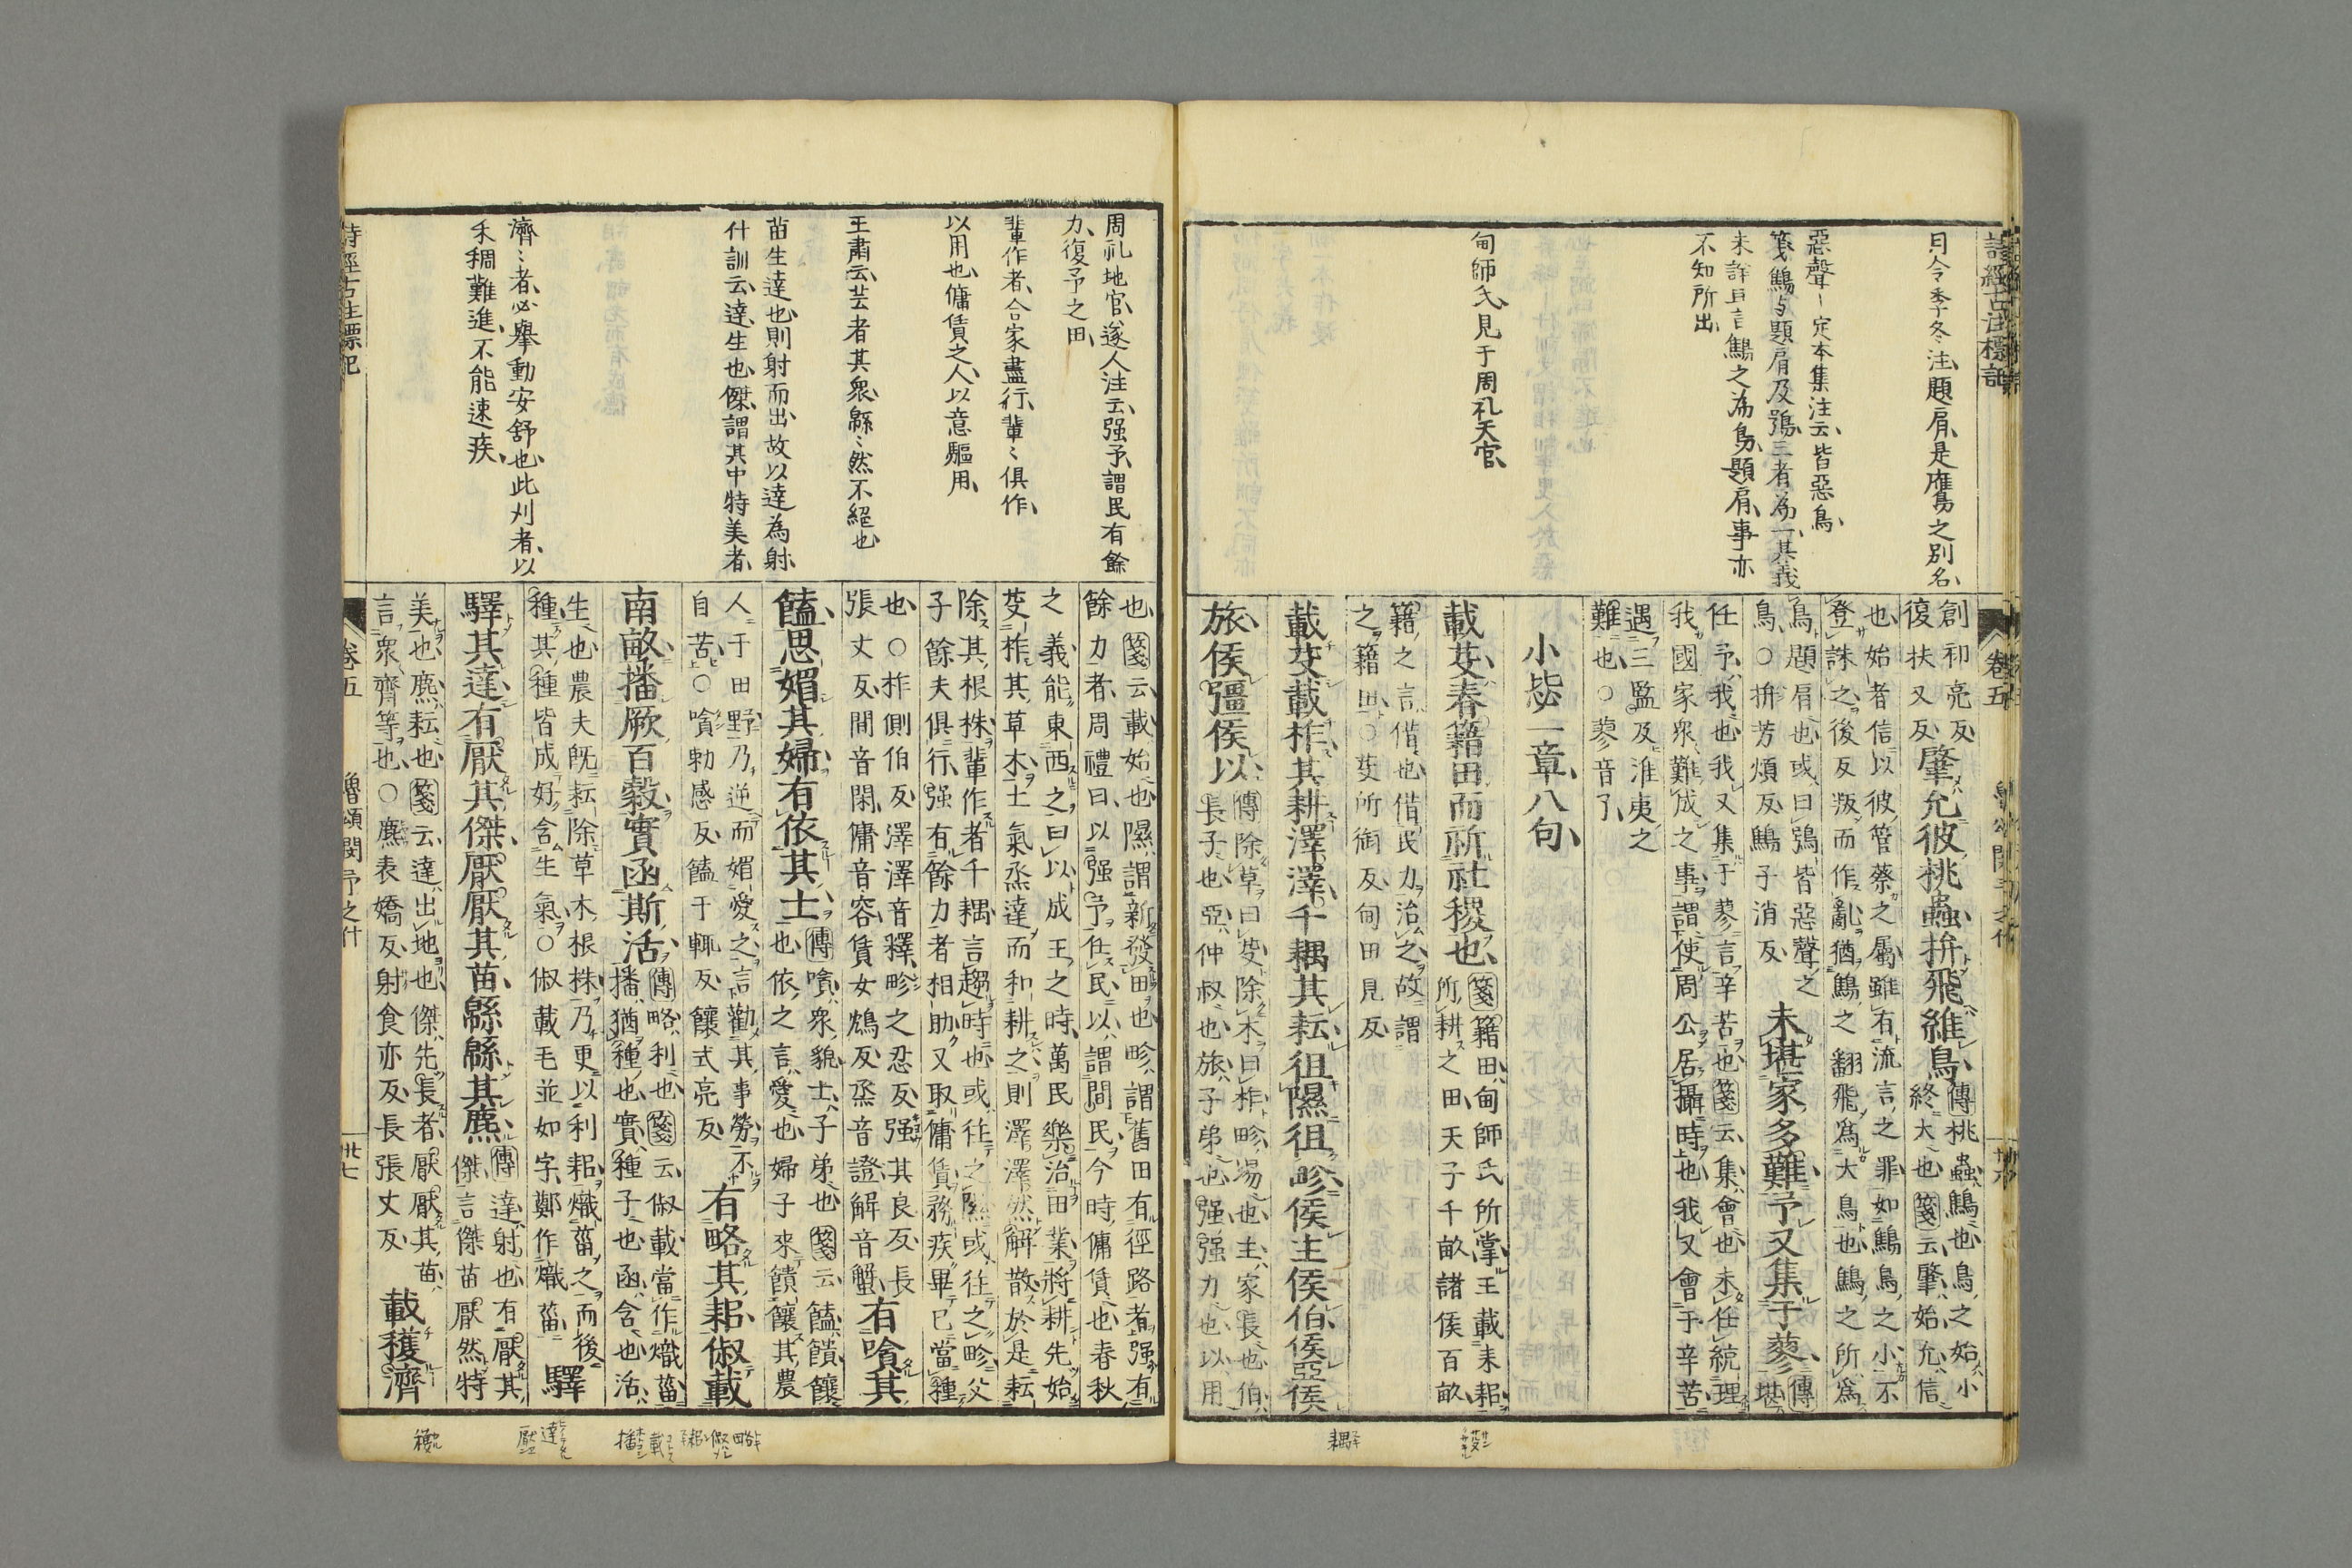 詩經古注標記
月令季冬注、題肩是鷹鳥之別名、
惡聲｜定本集注云、皆惡鳥
箋鷦与題肩及鴞三者為一、其義
未詳且言鷦之為鳥、題肩、事亦
不知所出、
甸師氏見于周礼天官、
卷五
創初亮反
復扶又反
肇允彼桃蟲拚飛維鳥
傳桃蟲鷦也鳥之始小
終大也箋云肇始允信
也始者信以彼管蔡之屬雖有流言之罪如鷦鳥之小不
登誅之後反叛而作亂猶鷦之翻飛爲大鳥也鷦之所爲
鳥題肩也或曰鴞皆惡聲之
鳥○拚芳煩反鷦子消反
未堪家多難予又集于蓼
傳堪
任予我也我又集于蓼言辛苦也箋云集會也未任統理
我國家衆難成之事謂使周公居攝時也我又會于辛苦
遇三監及淮夷之
難也○蓼音了
小毖一章八句
載芟春籍田而祈社稷也
箋籍田甸師氏所掌王載耒耜
所耕之田天子千畝諸侯百畝
籍之言借也借民力治之故謂
之籍田○芟所銜反甸田見反
載芟載柞其耕澤澤千耦其耘徂隰徂畛侯主侯伯侯亞侯
旅侯彊侯以
傳除草曰芟除木曰柞畛場也主家長也伯
長子也亞仲叔也旅子弟也强强力也以用
耦
周礼地官遂人注云强予謂民有餘
力復予之田
輩作者、合家盡行輩〻俱作、
以用也傭賃之人以意驅用
王肅云芸者其衆緜〻然不絕也
苗生達也則射而出故以達為射
什訓云達生也傑謂其中特美者
濟〻者必舉動安舒也此刈者以
禾稠難進不能速疾
也箋云載始也隰謂新發田也畛謂舊田有徑路者强有
餘力者周禮曰以强予任民以謂間民今時傭賃也春秋
之義能東西之曰以成王之時萬民樂治田業將耕先始
芟柞其草木土氣烝達而和耕之則澤澤然解散於是耘
除其根株輩作者千耦言趨時也或往之隰或往之畛父
子餘夫俱行强有餘力者相助又取傭賃務疾畢已當種
也○柞側伯反澤澤音釋畛之忍反强其良反長
張丈反間音閑傭音容賃女鴆反烝音證解音蟹
有嗿其
饁思媚其婦有依其士
傳嗿衆貌士子弟也箋云饁饋饟
也依之言愛也婦子來饋饟其農
人于田野乃逆而媚愛之言勸其事勞不
自苦○嗿勑感反饁于輒反饟式亮反
有略其耜俶載
南畝播厥百穀實函斯活
傳略利也箋云俶載當作熾菑
播猶種也實種子也函含也活
生也農夫既耘除草木根株乃更以利耜熾菑之而後
種其種皆成好含生氣○俶載毛並如字鄭作熾菑
驛
驛其達有厭其傑厭厭其苗緜緜其麃
傳達射也有厭其
傑言傑苗厭然特
美也麃耘也箋云達出地也傑先長者厭厭其苗
言衆齊等也○麃表嬌反射食亦反長張丈反
載穫濟
詩經古注標記
卷五
魯頌閔予之什
卅七